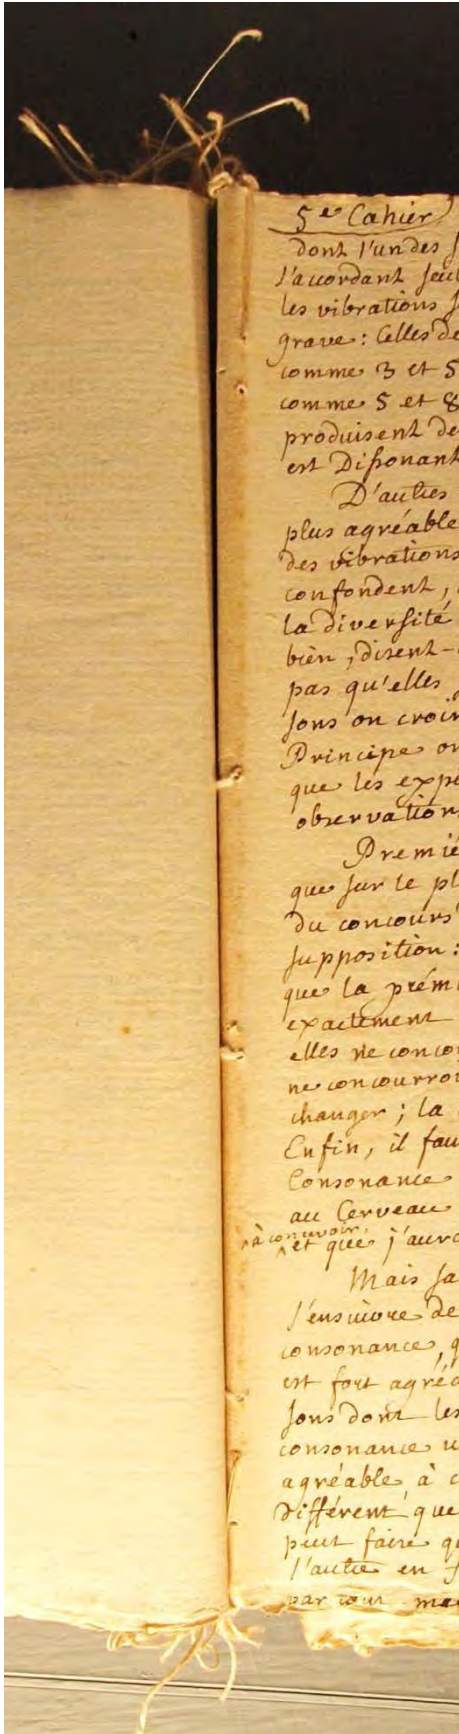 5e Cahier
dont l'un des
l'acordant seul
les vibrations
grave: Celles de
comme 3 et 5
comme 5 et 8
produisent de
est Dissonant
D'autres
plus agréable
des vibrations
confondent,
la diversité
bien, disent-
pas qu'elles
sons on croir
Principe on
que les expé
observations
Premié
que sur le pl
du concours
supposition:
que la prém
exactement
elles ne conco
ne concourroi
changer; la
Enfin, il fau
Consonance
au Cerveau
à concevoir
et que j'auro
Mais sa
s'ensuivre de
consonance, q
est fort agréa
sons dont les
consonance u
agréable à c
différent que
peut faire qu
l'autre en f
par tout mes